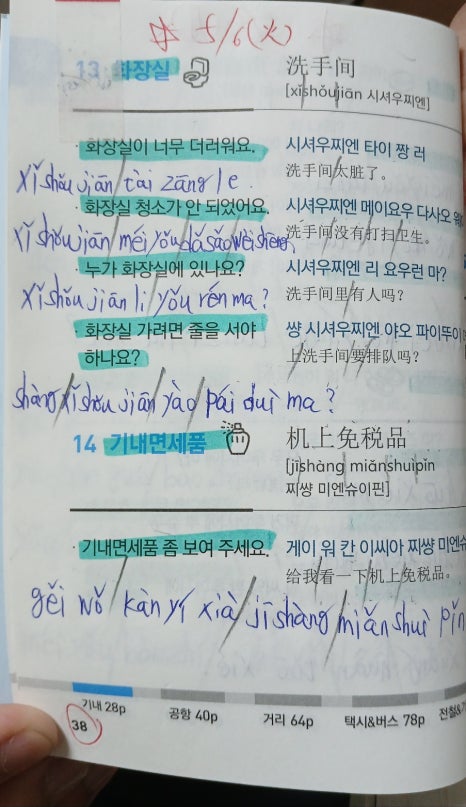 본 5/6(火)
13 화장실
洗手间
[xǐshǒujiān 시셔우찌엔]
· 화장실이 너무 더러워요. 시셔우찌엔 타이 짱 러
洗手间太脏了。
xǐshǒu jiān tài zāng le.
· 화장실 청소가 안 되었어요. 시셔우찌엔 메이요우 다사오
洗手间没有打扫卫生。
xǐshǒu jiān méi yǒu dǎ sǎo wèi shēng
· 누가 화장실에 있나요? 시셔우찌엔 리 요우런 마?
洗手间里有人吗?
xǐshǒu jiān li yǒu rén ma?
· 화장실 가려면 줄을 서야 썅 시셔우찌엔 야오 파이뚜이
하나요? 上洗手间要排队吗?
shàng xǐshǒu jiān yào pái duì ma?
14 기내면세품
机上免税品
[jīshàng miǎnshuìpǐn
찌썅 미엔슈이핀]
· 기내면세품 좀 보여 주세요. 게이 워 칸 이씨아 찌썅 미엔슈
给我看一下机上免税品。
gěi wǒ kàn yí xià jī shàng miǎn shuì pǐn
기내 28p 공항 40p 거리 64p 택시&버스 78p
38